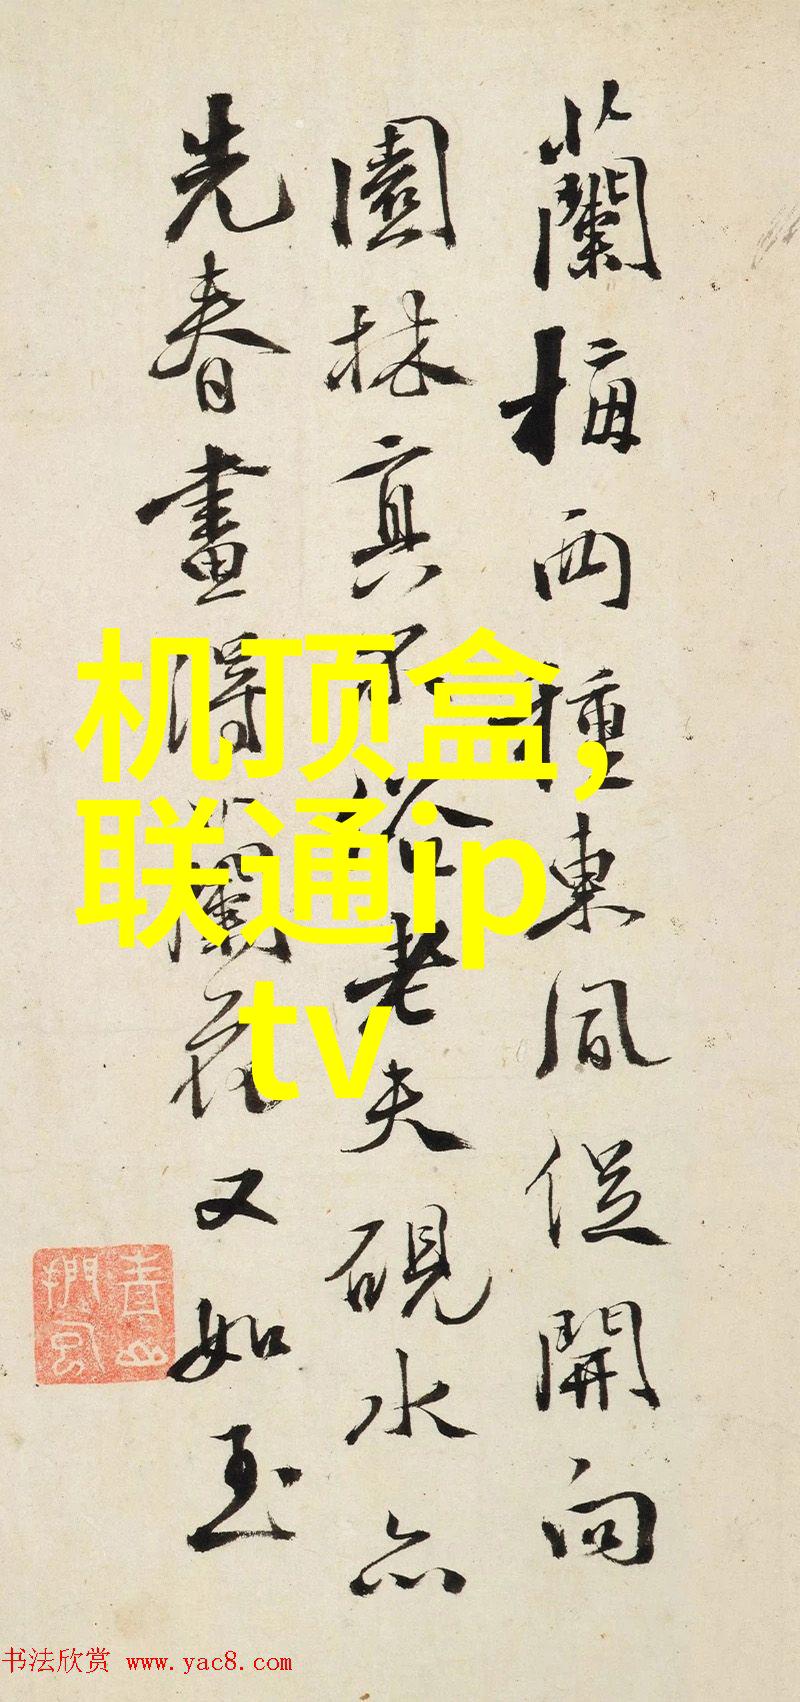 蘭梅两種東風促開向
園林真不俗老夫硯水亦
先春畫得蘭花又如玉
机顶盒,
联通ip
tv
书法欣赏 www.yac8.com